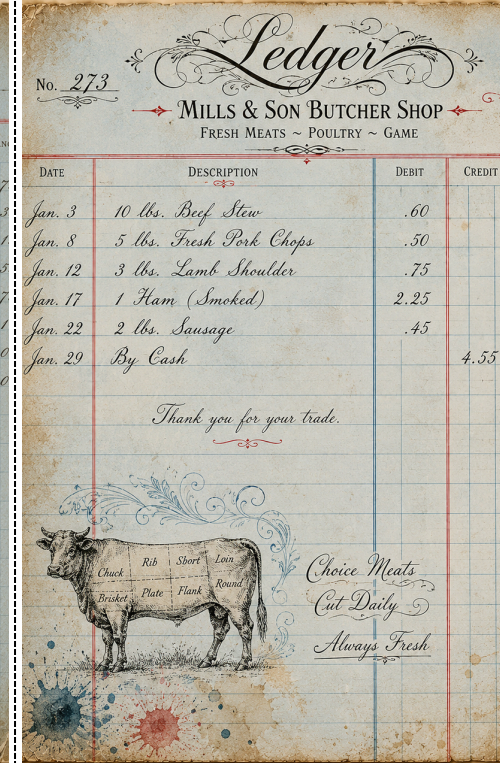 Ledger
No. 273
Mills & Son Butcher Shop
Fresh Meats ~ Poultry ~ Game
Date Description Debit Credit
Jan. 3 10 lbs. Beef Stew .60
Jan. 8 5 lbs. Fresh Pork Chops .50
Jan. 12 3 lbs. Lamb Shoulder .75
Jan. 17 1 Ham (Smoked) 2.25
Jan. 22 2 lbs. Sausage .45
Jan. 29 By Cash 4.55
Thank you for your trade.
Chuck Rib Short Loin
Brisket Plate Flank Round
Choice Meats
Cut Daily
Always Fresh